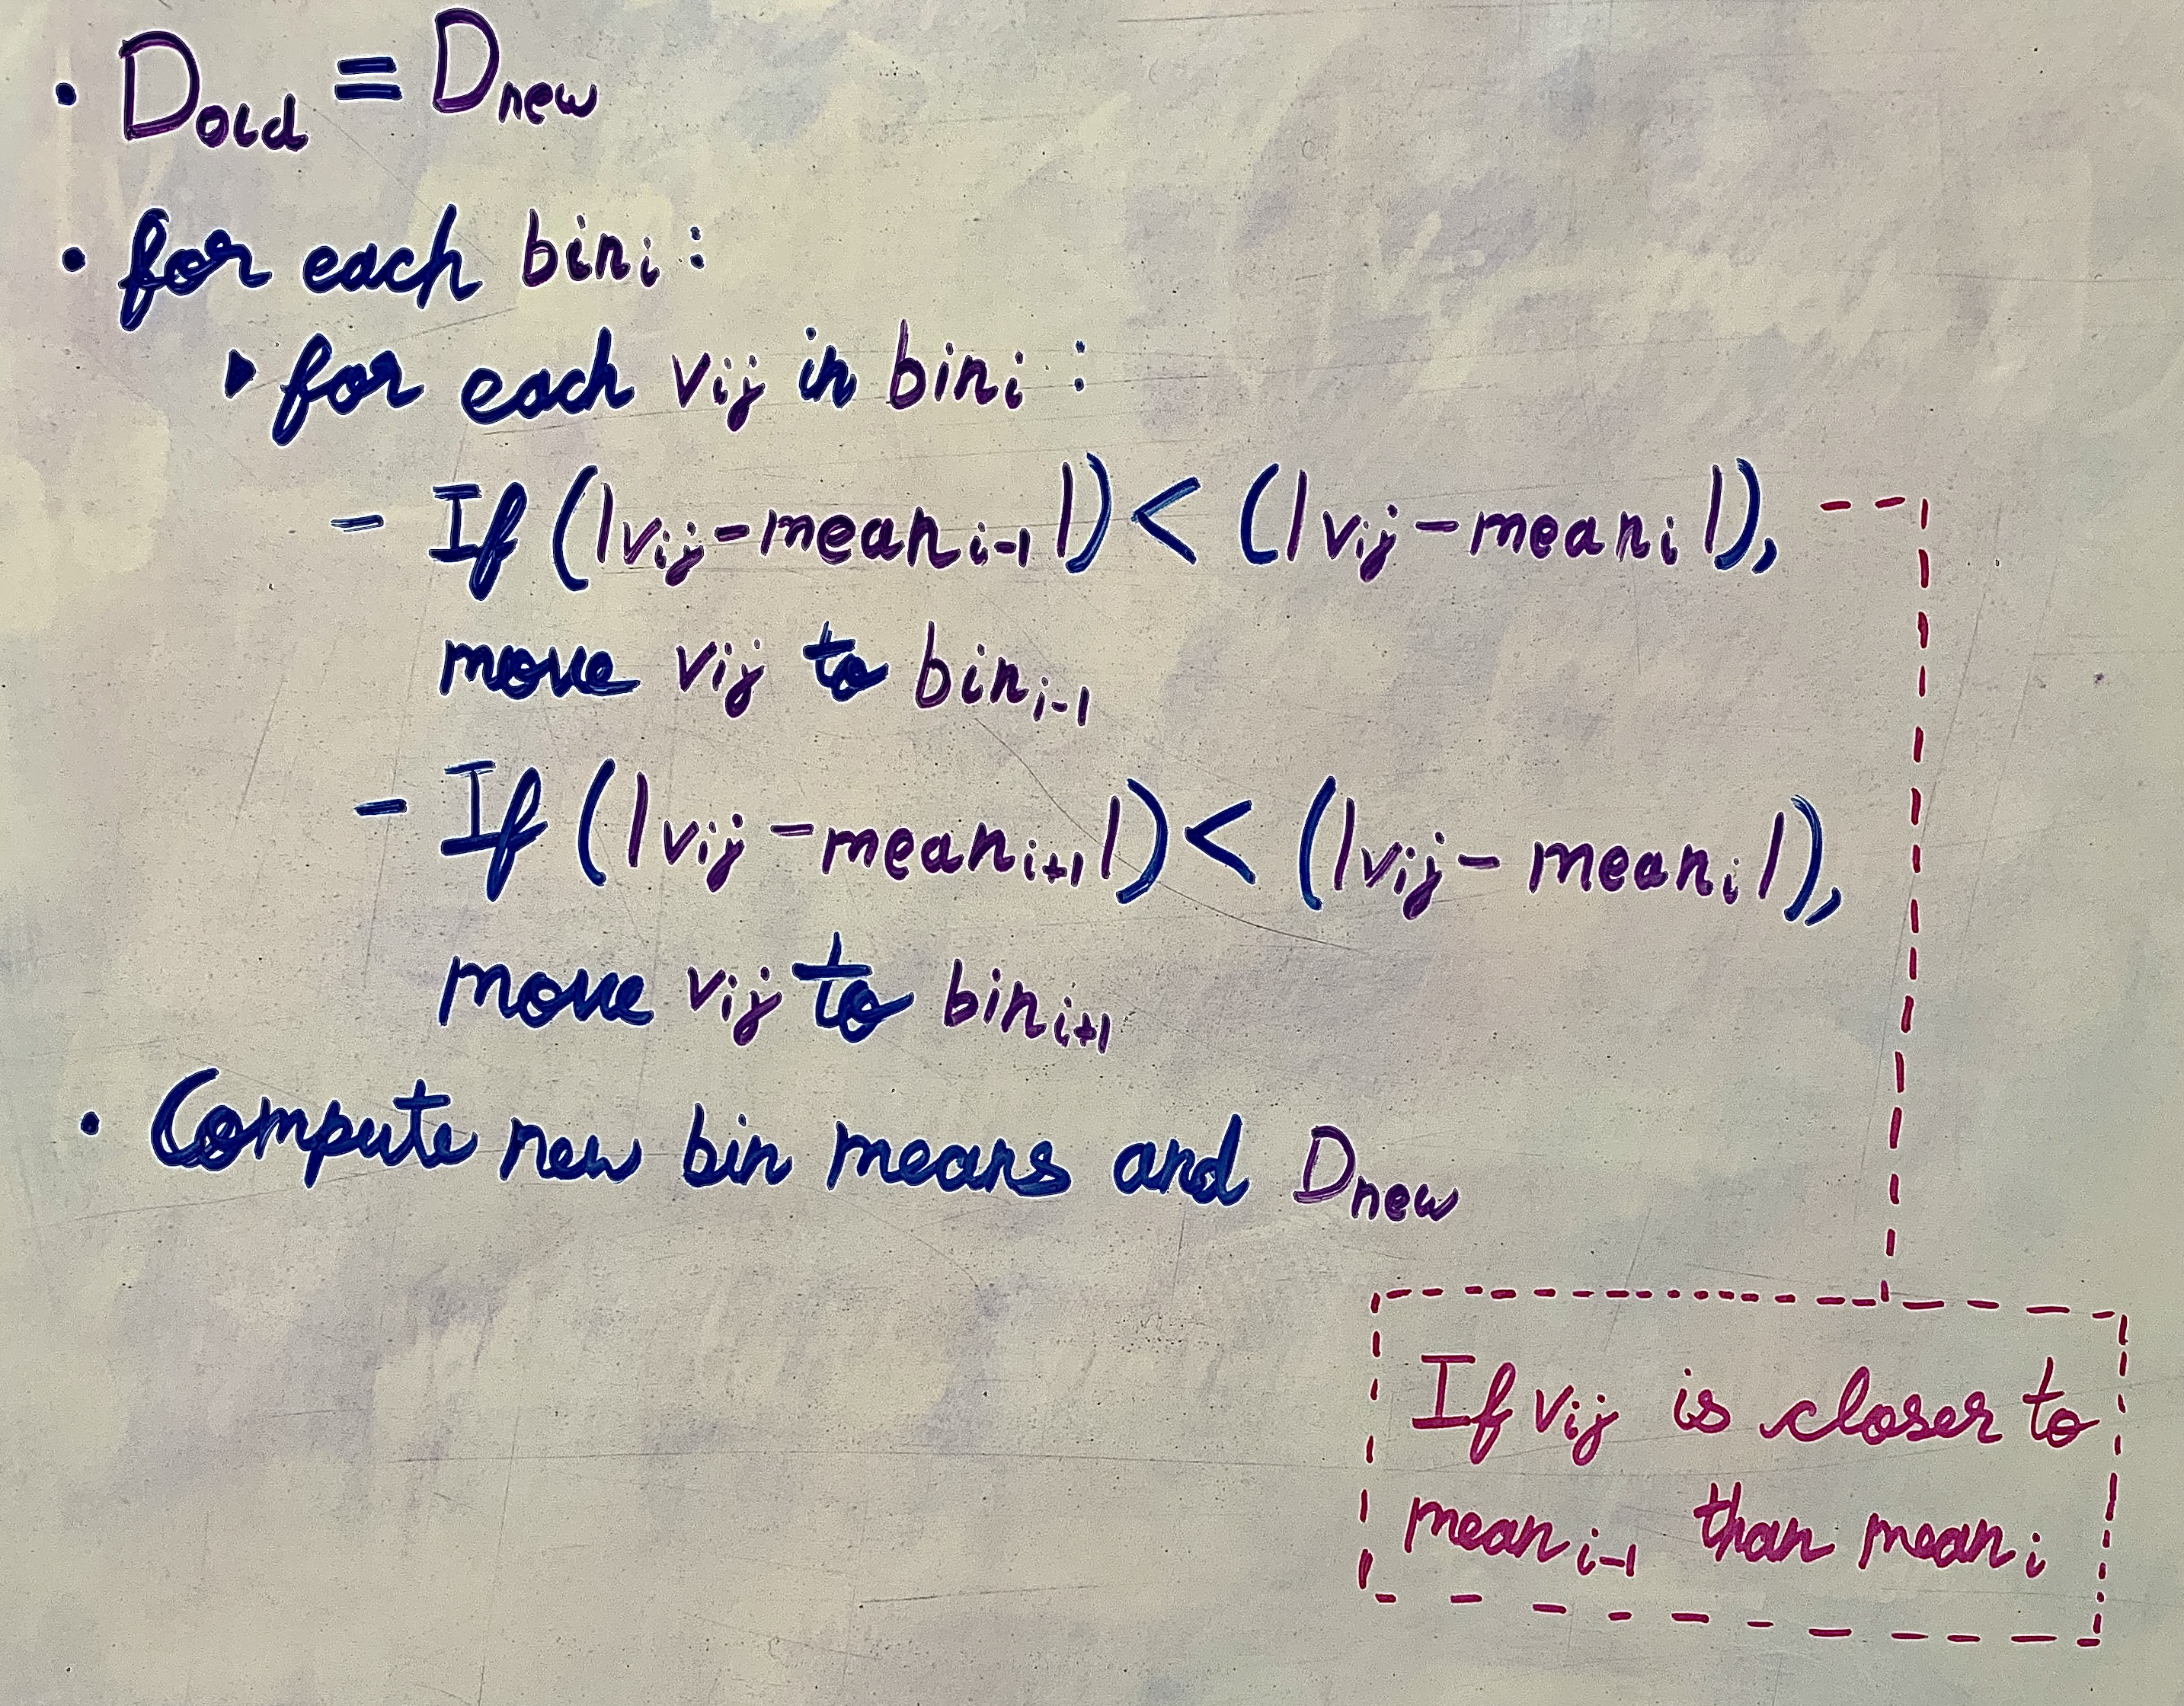 • D_old = D_new
• for each bin_i :
▸ for each v_ij in bin_i :
- If (|v_ij - mean_i-1|) < (|v_ij - mean_i|),
move v_ij to bin_i-1
- If (|v_ij - mean_i+1|) < (|v_ij - mean_i|),
move v_ij to bin_i+1
• Compute new bin means and D_new
If v_ij is closer to
mean_i-1 than mean_i